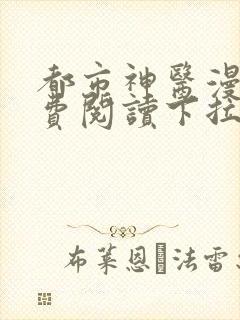 都市神醫漫
費閱讀下拉
布萊恩�法雷